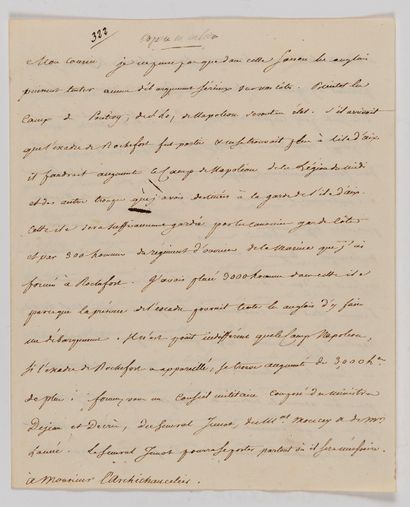 322
Mon cousin, je ne pense pas que dans cette saison les anglais
puissent tenter aucun débarquement sérieux sur nos côtes. Bientôt les
Camps de Pontivy, de St Lo, de Napoleon seront en état. S'il arrivait
que l'escadre de Rochefort fut partie & ne se trouvait plus à l'ile d'aix
il faudrait augmenter le Camp de Napoleon de la Légion du midi
et des autres troupes que j'avais destinées à la garde de l'ile d'aix.
Cette ile sera suffisamment gardée par les canonniers garde Côtes
et par 300 hommes du régiment d'ouvriers de la Marine que j'ai
formé à Rochefort. J'avais placé 3000 hommes dans cette ile
parceque la présence de l'escadre pouvait tenter les anglais d'y faire
un débarquement. Il n'est point indifférent que le Camp Napoleon,
si l'escadre de Rochefort a appareillé, se trouve augmenté de 3,000 h.
de plus. formez vous un Conseil militaire composé des ministres
Dejean et Decrès, du Général Junot, du Mal Moncey & de Mr
Lacuée. Le Général Junot pourra se porter partout où il sera nécessaire.
à Monsieur L'Archichancelier